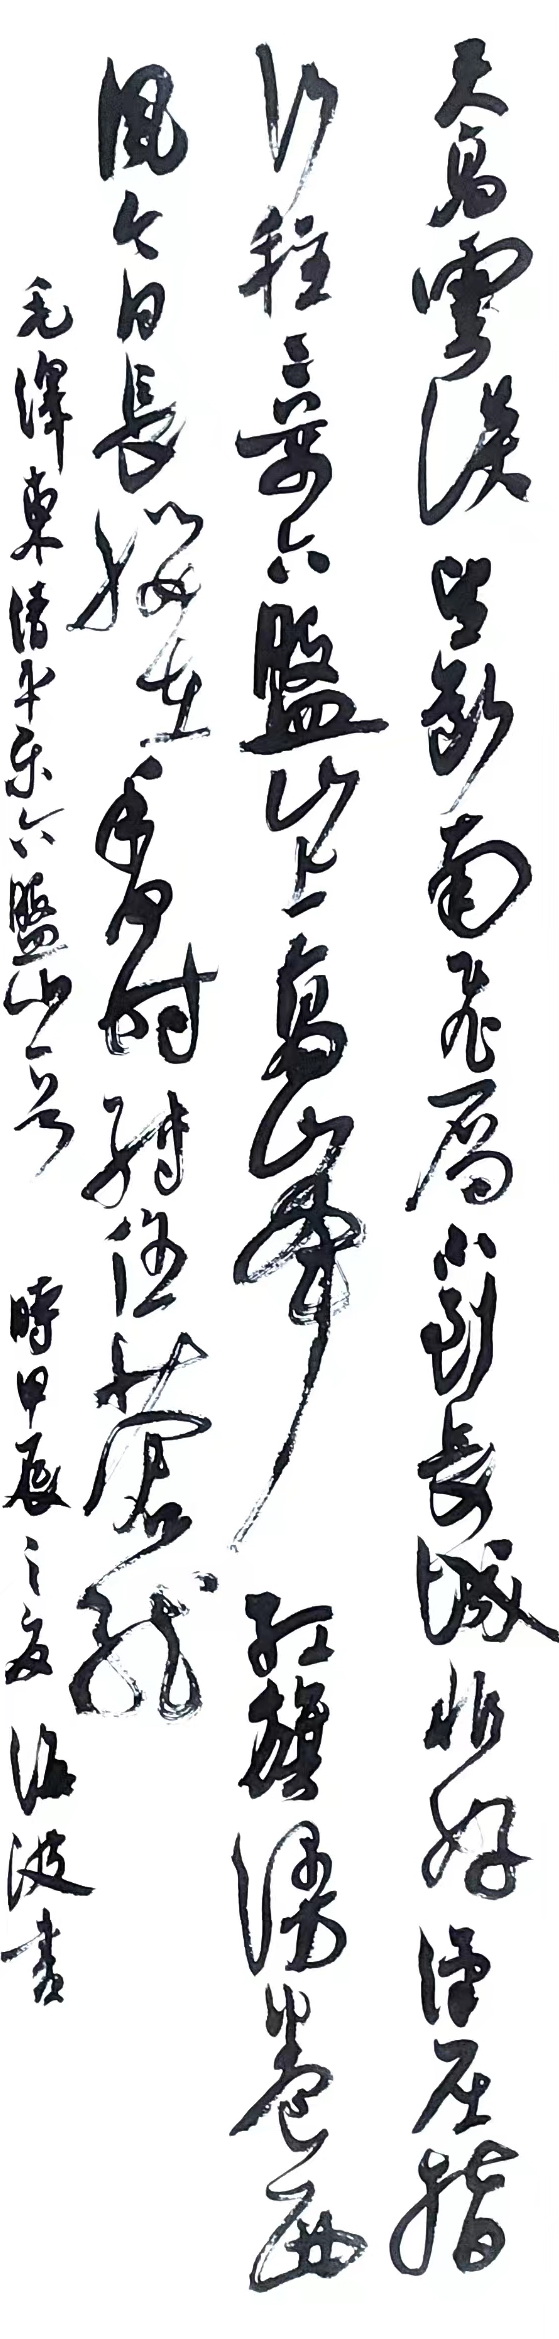 天高雲淡望斷南飛雁不到長城非好漢屈指
行程二萬六盤山上高峰紅旗漫卷西
風今日長纓在手何時縛住蒼龍
毛澤東清平乐六盤山一首 時甲辰之夏 波書